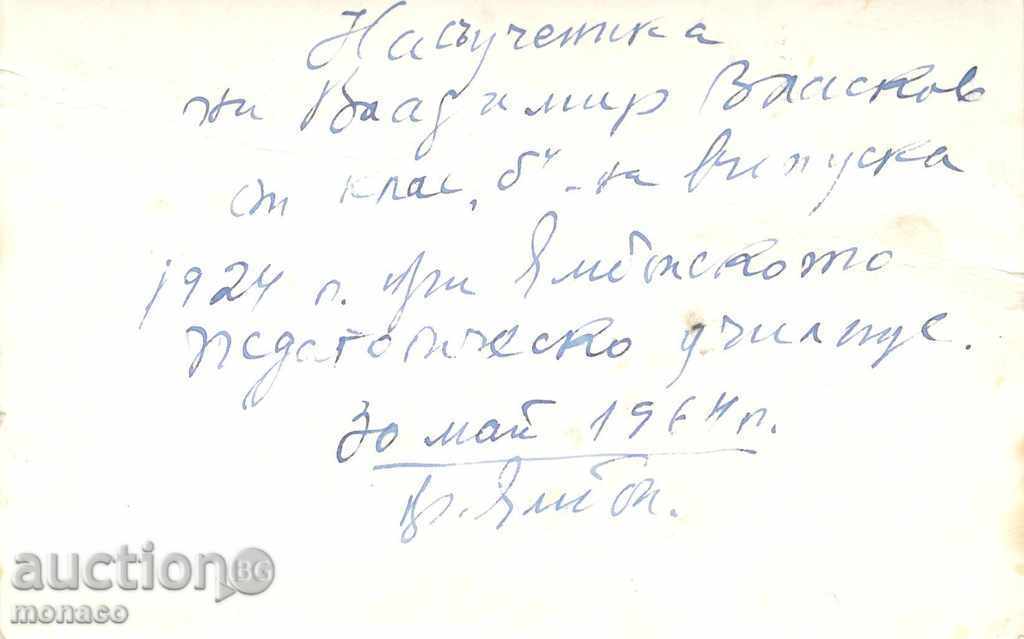 На съученика
ни Владимир Власков
от клас „б“ – на випуска
1924 г. при Ямболското
педагогическо училище.
30 май 1964 г.
гр. Ямбол.
auction BG
monaco